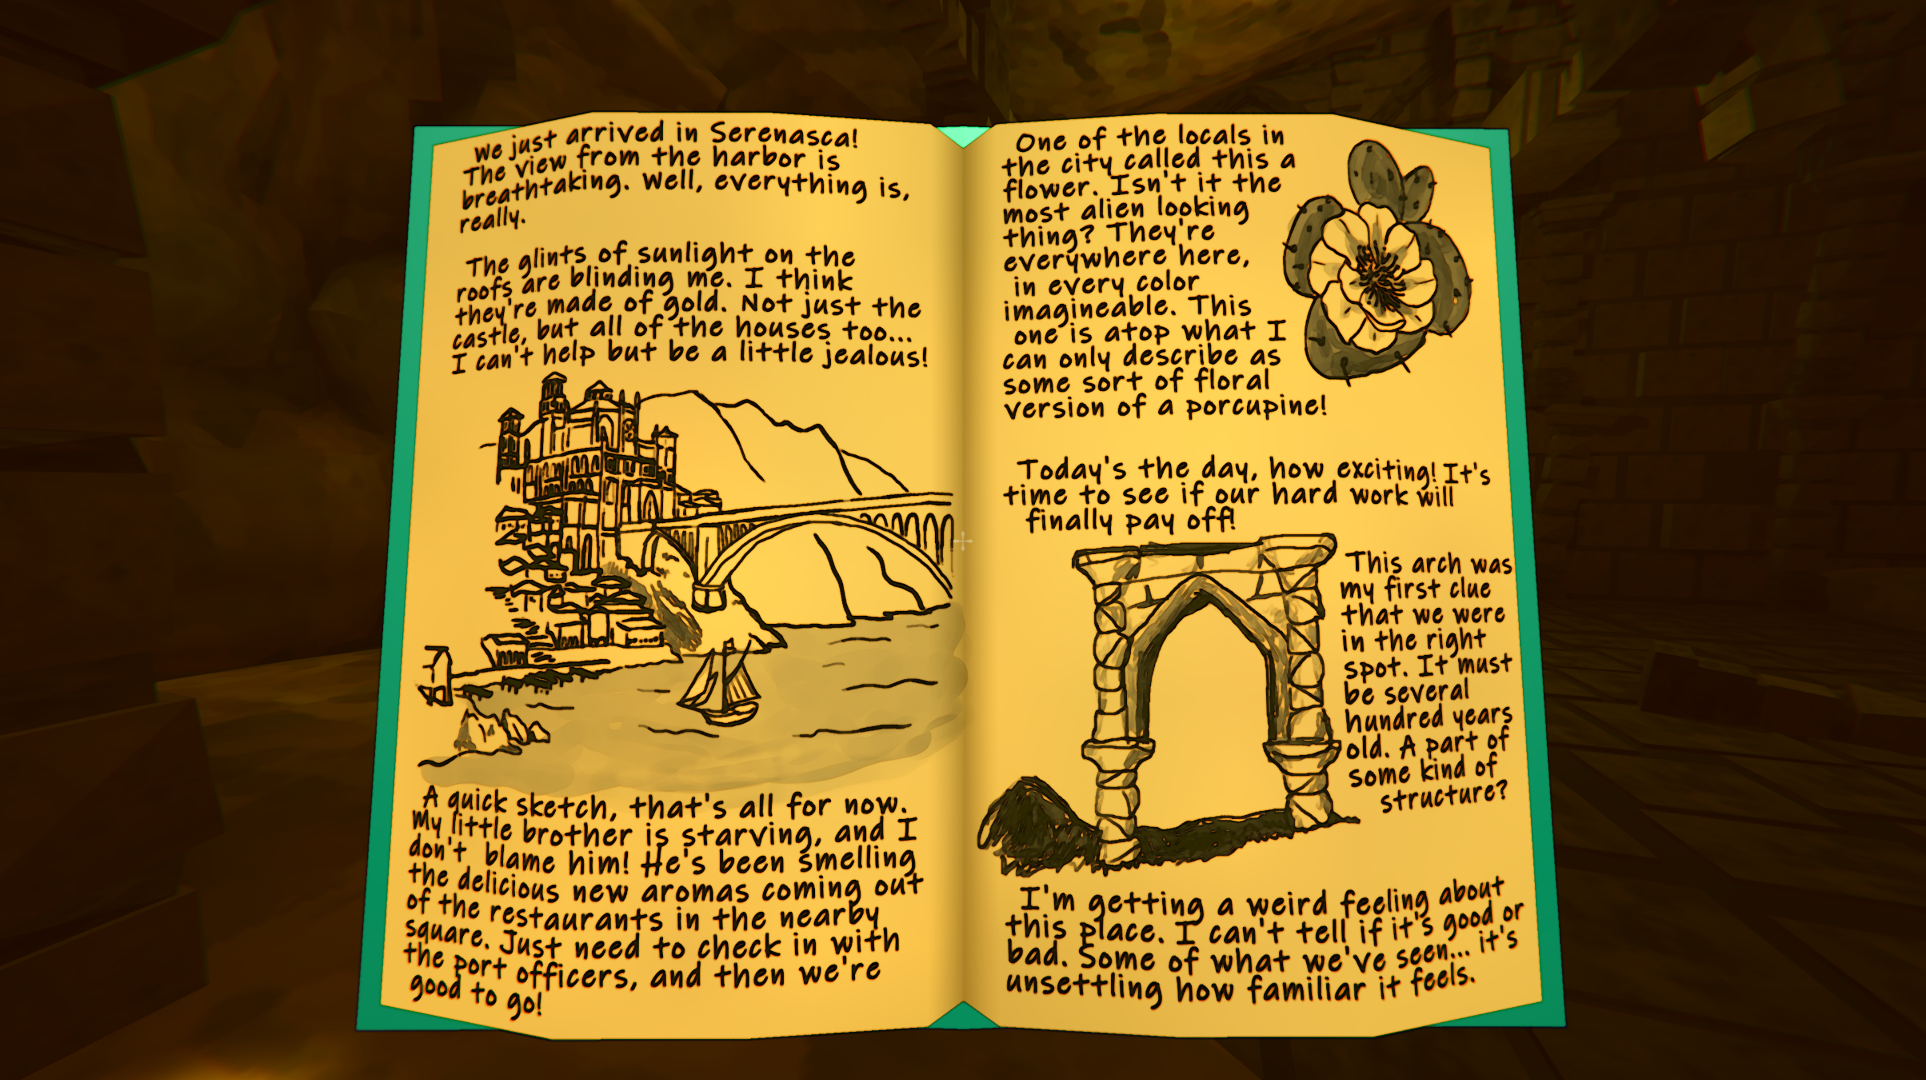 We just arrived in Serenasca!
The view from the harbor is
breathtaking. Well, everything is,
really.
The glints of sunlight on the
roofs are blinding me. I think
they're made of gold. Not just the
castle, but all of the houses too...
I can't help but be a little jealous!
A quick sketch, that's all for now.
My little brother is starving, and I
don't blame him! He's been smelling
the delicious new aromas coming out
of the restaurants in the nearby
square. Just need to check in with
the port officers, and then we're
good to go!
One of the locals in
the city called this a
flower. Isn't it the
most alien looking
thing? They're
everywhere here,
in every color
imagineable. This
one is atop what I
can only describe as
some sort of floral
version of a porcupine!
Today's the day, how exciting! It's
time to see if our hard work will
finally pay off!
This arch was
my first clue
that we were
in the right
spot. It must
be several
hundred years
old. A part of
some kind of
structure?
I'm getting a weird feeling about
this place. I can't tell if it's good or
bad. Some of what we've seen... it's
unsettling how familiar it feels.